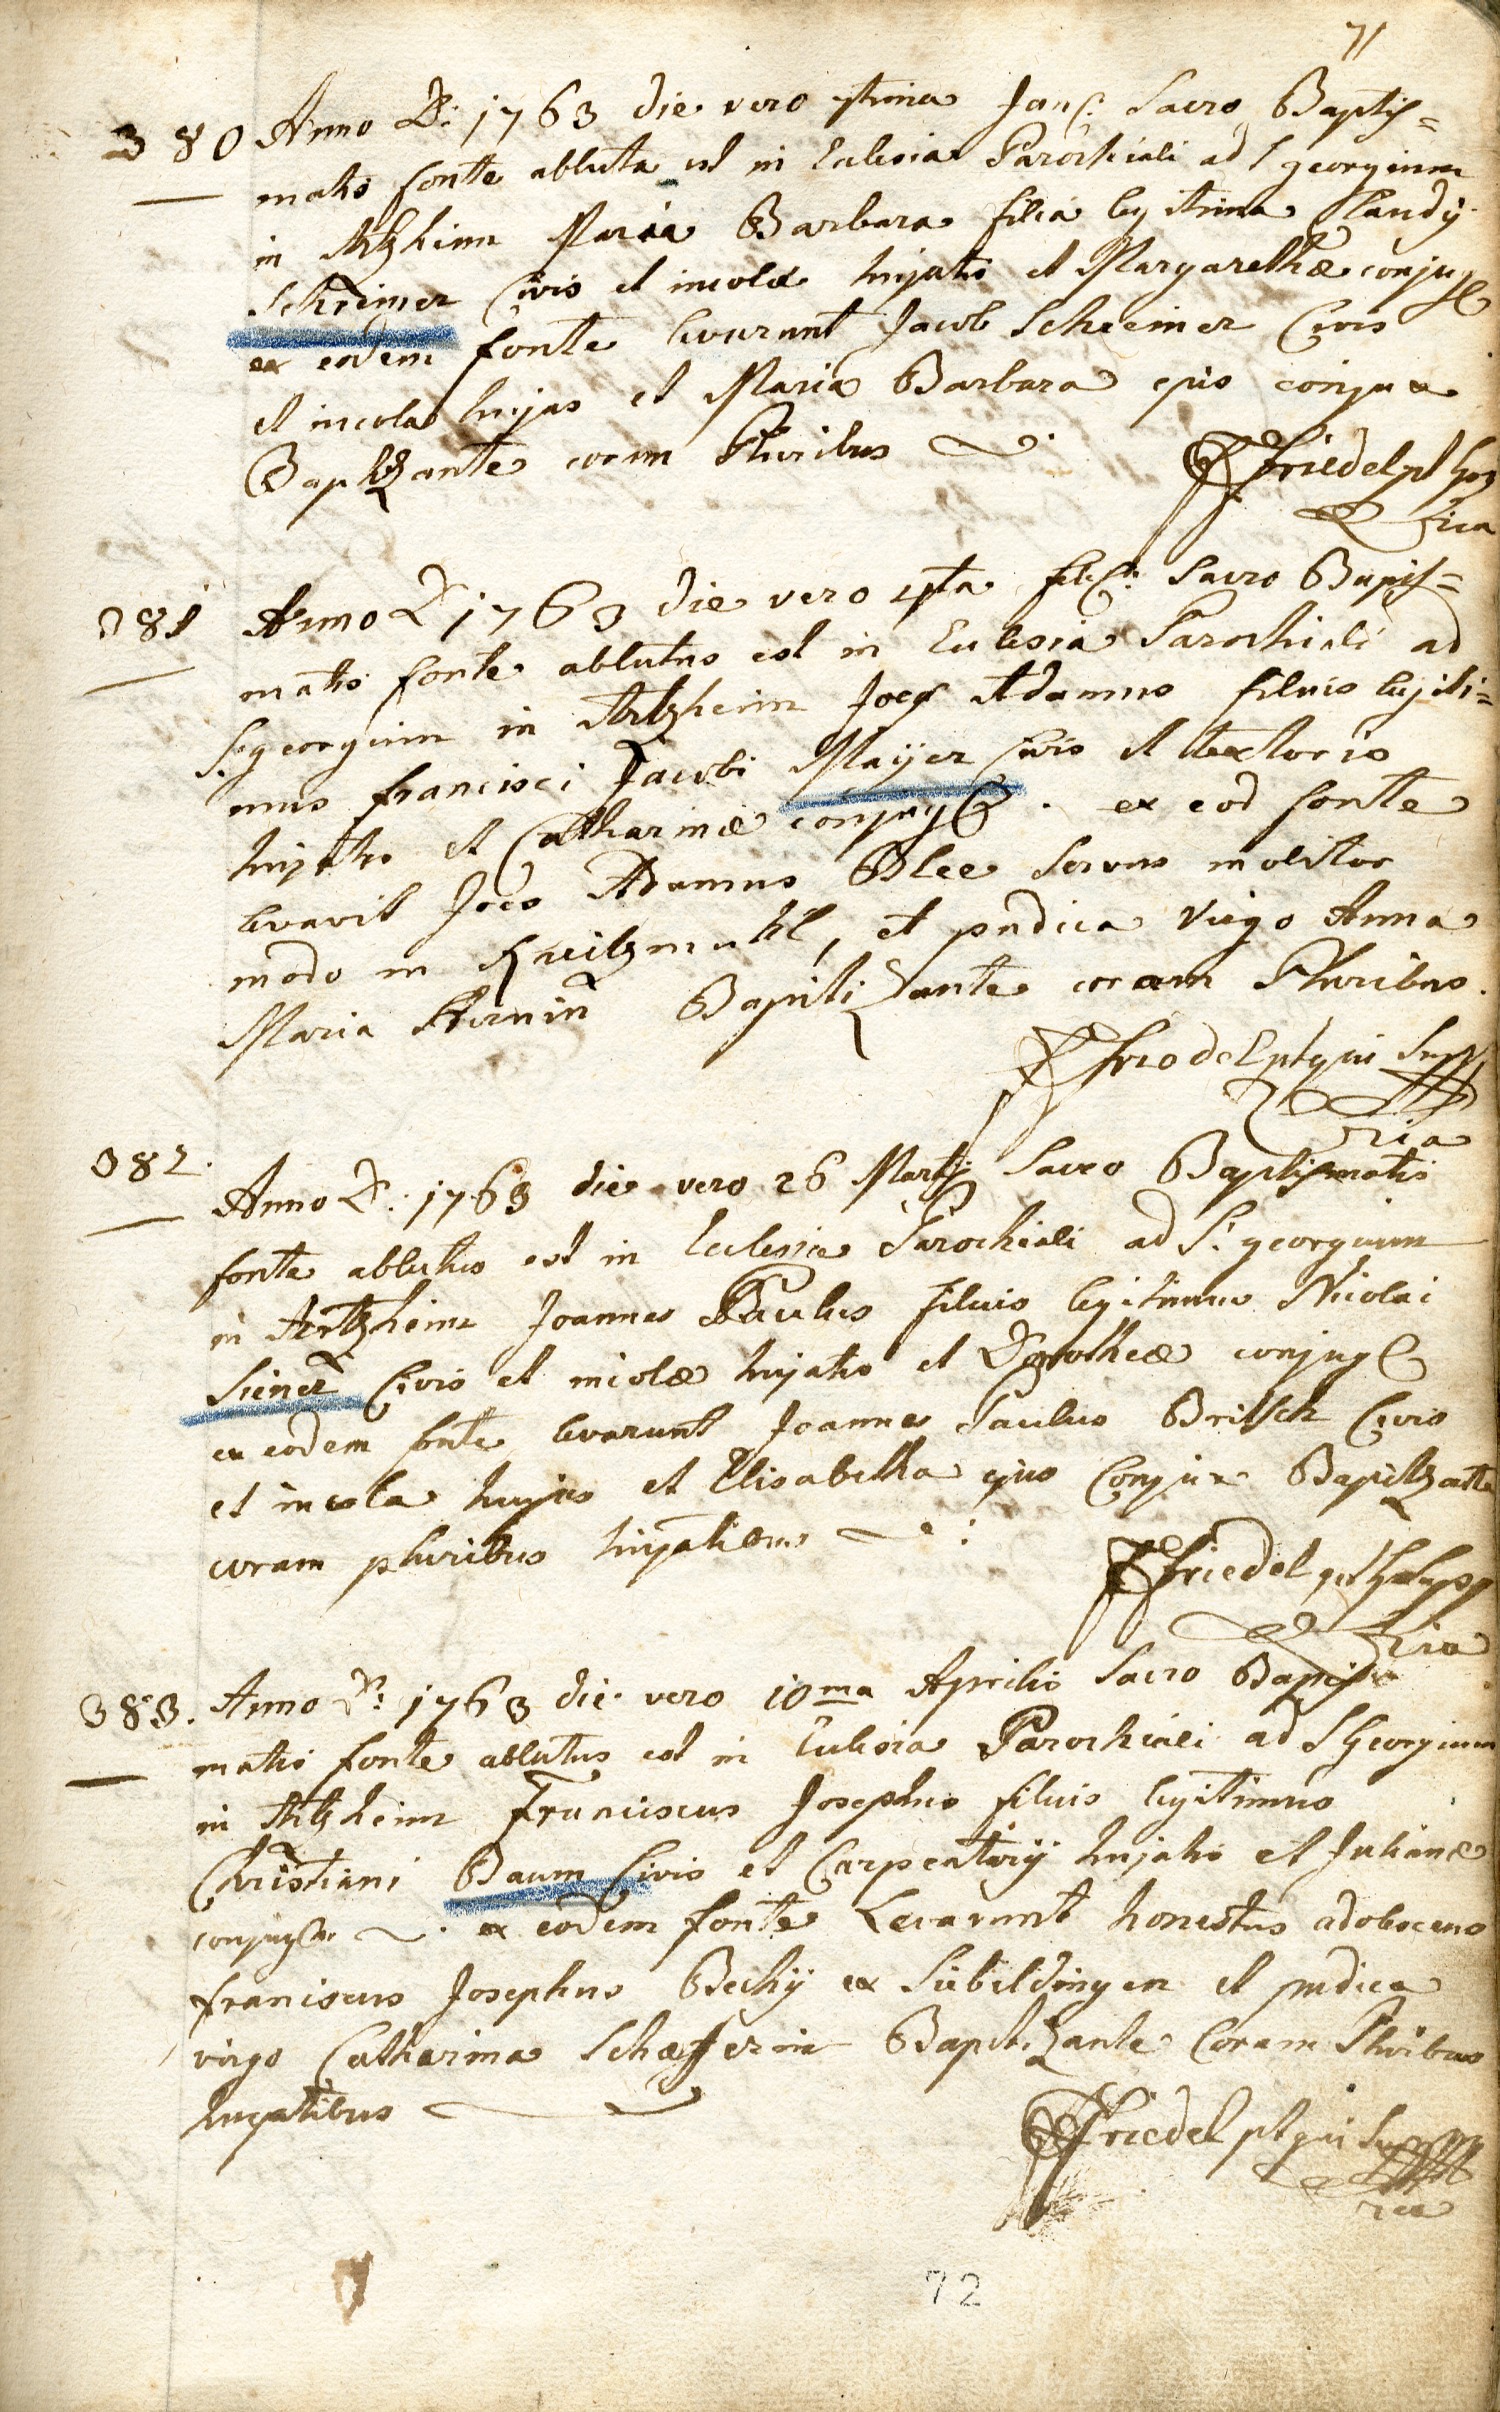 71
380 Anno D: 1763 die vero Jan: Sacro Baptis=
matis fonte abluta est in Ecclesia Parochiali ad S georgium
in Artzheim Maria Barbara filia legitima
Schreiner Civis et incolæ hujatis et Margarethæ conjug
ex eodem fonte levarunt Jacob Schreiner Civis
et incola hujas et Maria Barbara ejus conjux
Baptizante coram Pluribus
Friedel
381 Anno D 1763 die vero 4ta feb: Sacro Baptis=
matis fonte ablutus est in Ecclesia Parochiali ad
S: georgium in Artzheim Joes Adamus filius legiti=
mus francisci Jacobi Maÿer Civis et textoris
hujatis et Catharinæ conjug. ex eod fonte
levavit Joes Adamus Blee servus molitor
modo in , et pudica virgo Anna
Maria Baptizante coram Pluribus.
Friedel
ria
382. Anno D: 1763 die vero 26 Martÿ Sacro Baptismatis
fonte ablutus est in Ecclesia Parochiali ad S: georgium
in Artzheim Joannes Paulus filius legitimus Nicolai
Siener Civis et incolæ hujatis et Dorotheæ conjug
ex eodem fonte levarunt Joannes Paulus Britsch Civis
et incola hujas et Elisabetha ejus Conjux Baptizante
coram pluribus hujatibus
Friedel
ria
383. Anno D: 1763 die vero 10ma Aprilis Sacro Baptis
matis fonte ablutus est in Ecclesia Parochiali ad S Georgium
in Artzheim Franciscus Josephus filius legitimus
Christiani Baum Civis et Carpentarÿ hujatis et Julianæ
conjug. ex eodem fonte Levarunt honestus adolescens
franciscus Josephus Bechÿ ex Siebeldingen et pudica
virgo Catharina Schæfferin Baptizante Coram Pluribus
hujatibus
Friedel
72